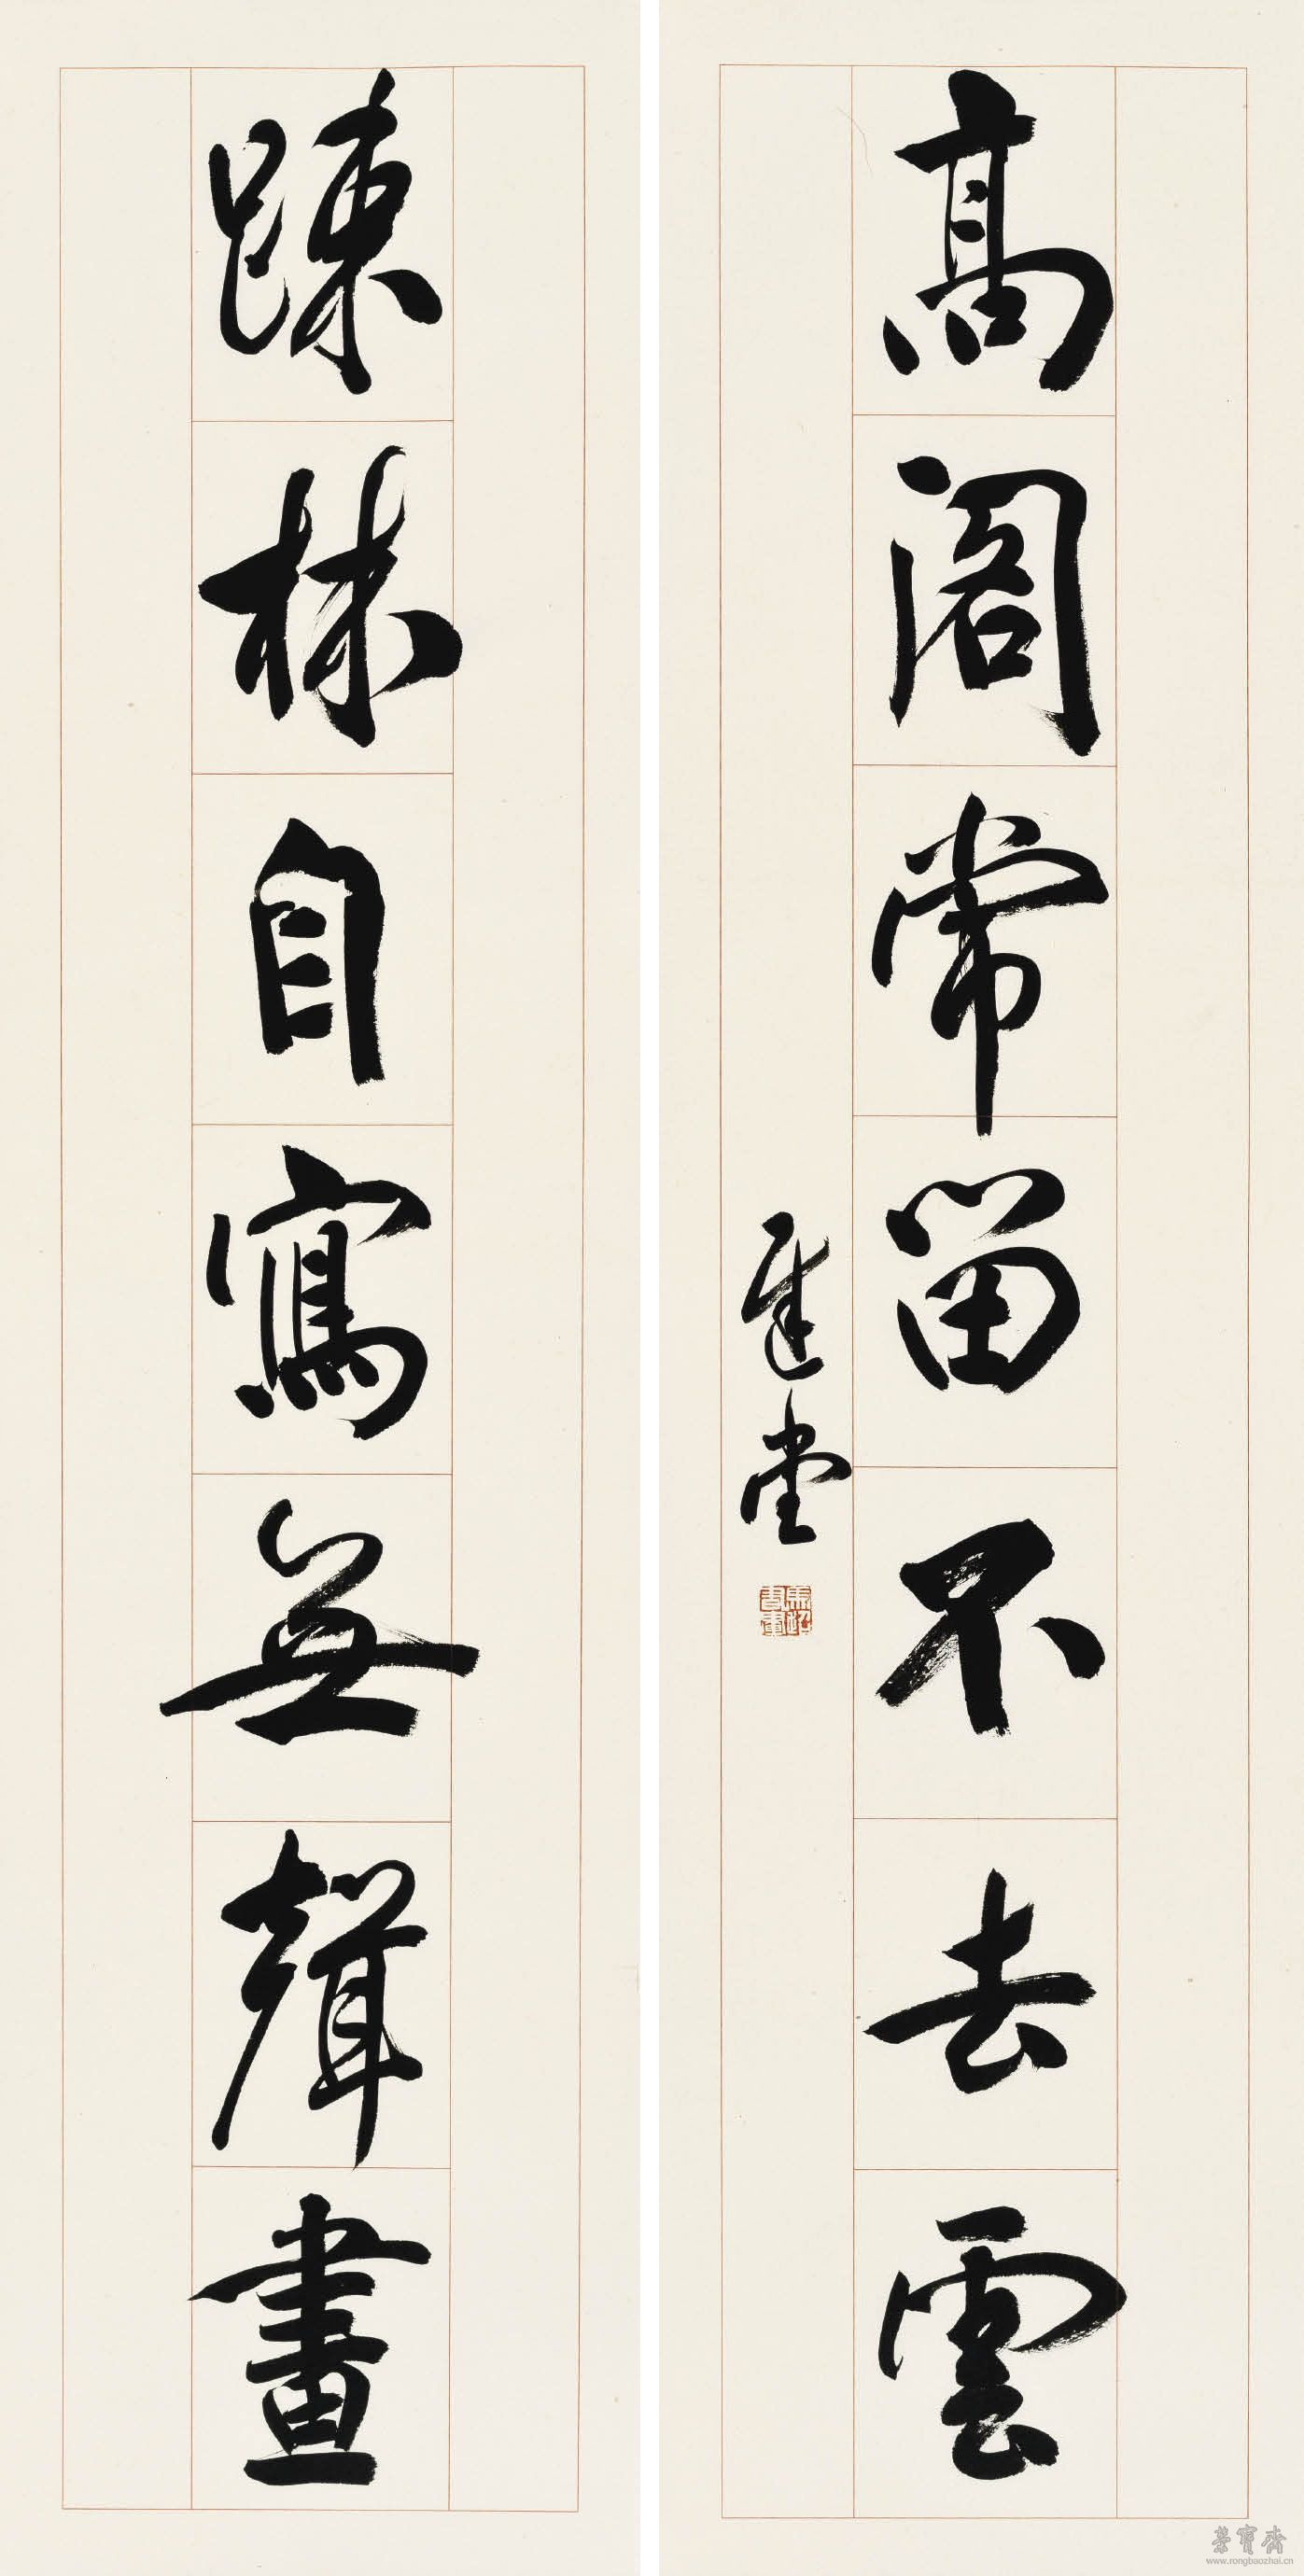 高閣常留不去雲
堂
踈林自寫無聲畫
榮寶齋
www.rongbaozhai.cn